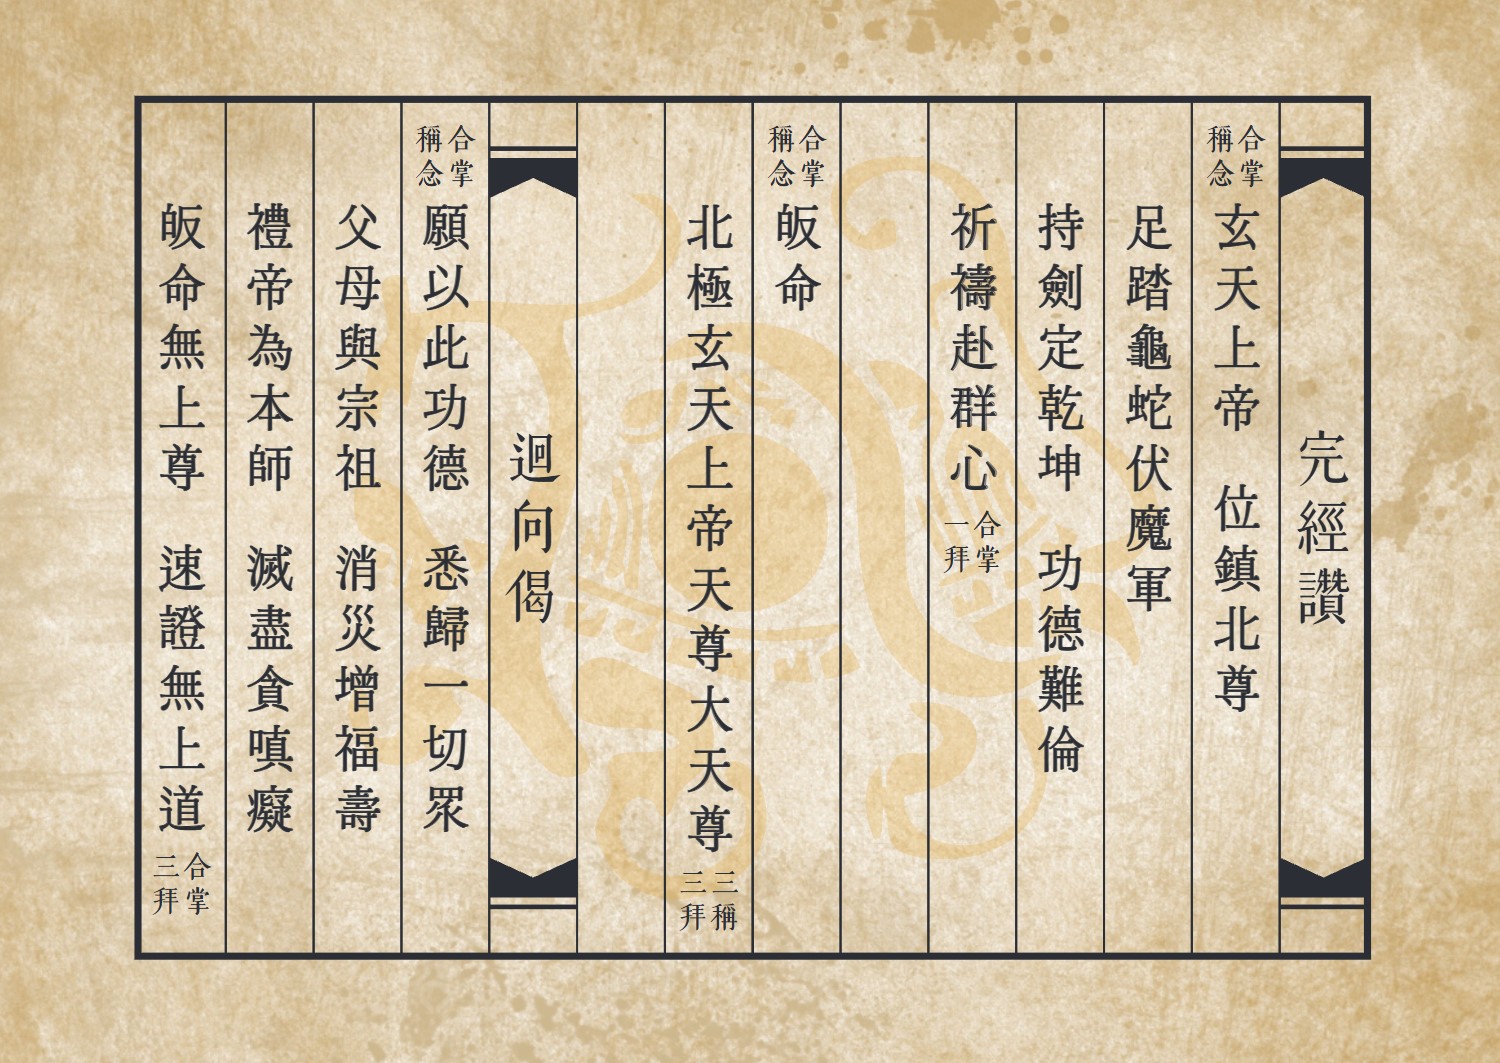 完經讚
合掌稱念 玄天上帝 位鎮北尊
足踏龜蛇伏魔軍
持劍定乾坤 功德難倫
祈禱赴群心 合掌一拜
合掌稱念 皈命
北極玄天上帝天尊大天尊 三稱三拜
迴向偈
合掌稱念 願以此功德 悉歸一切眾
父母與宗祖 消災增福壽
禮帝為本師 滅盡貪嗔癡
皈命無上尊 速證無上道 合掌三拜